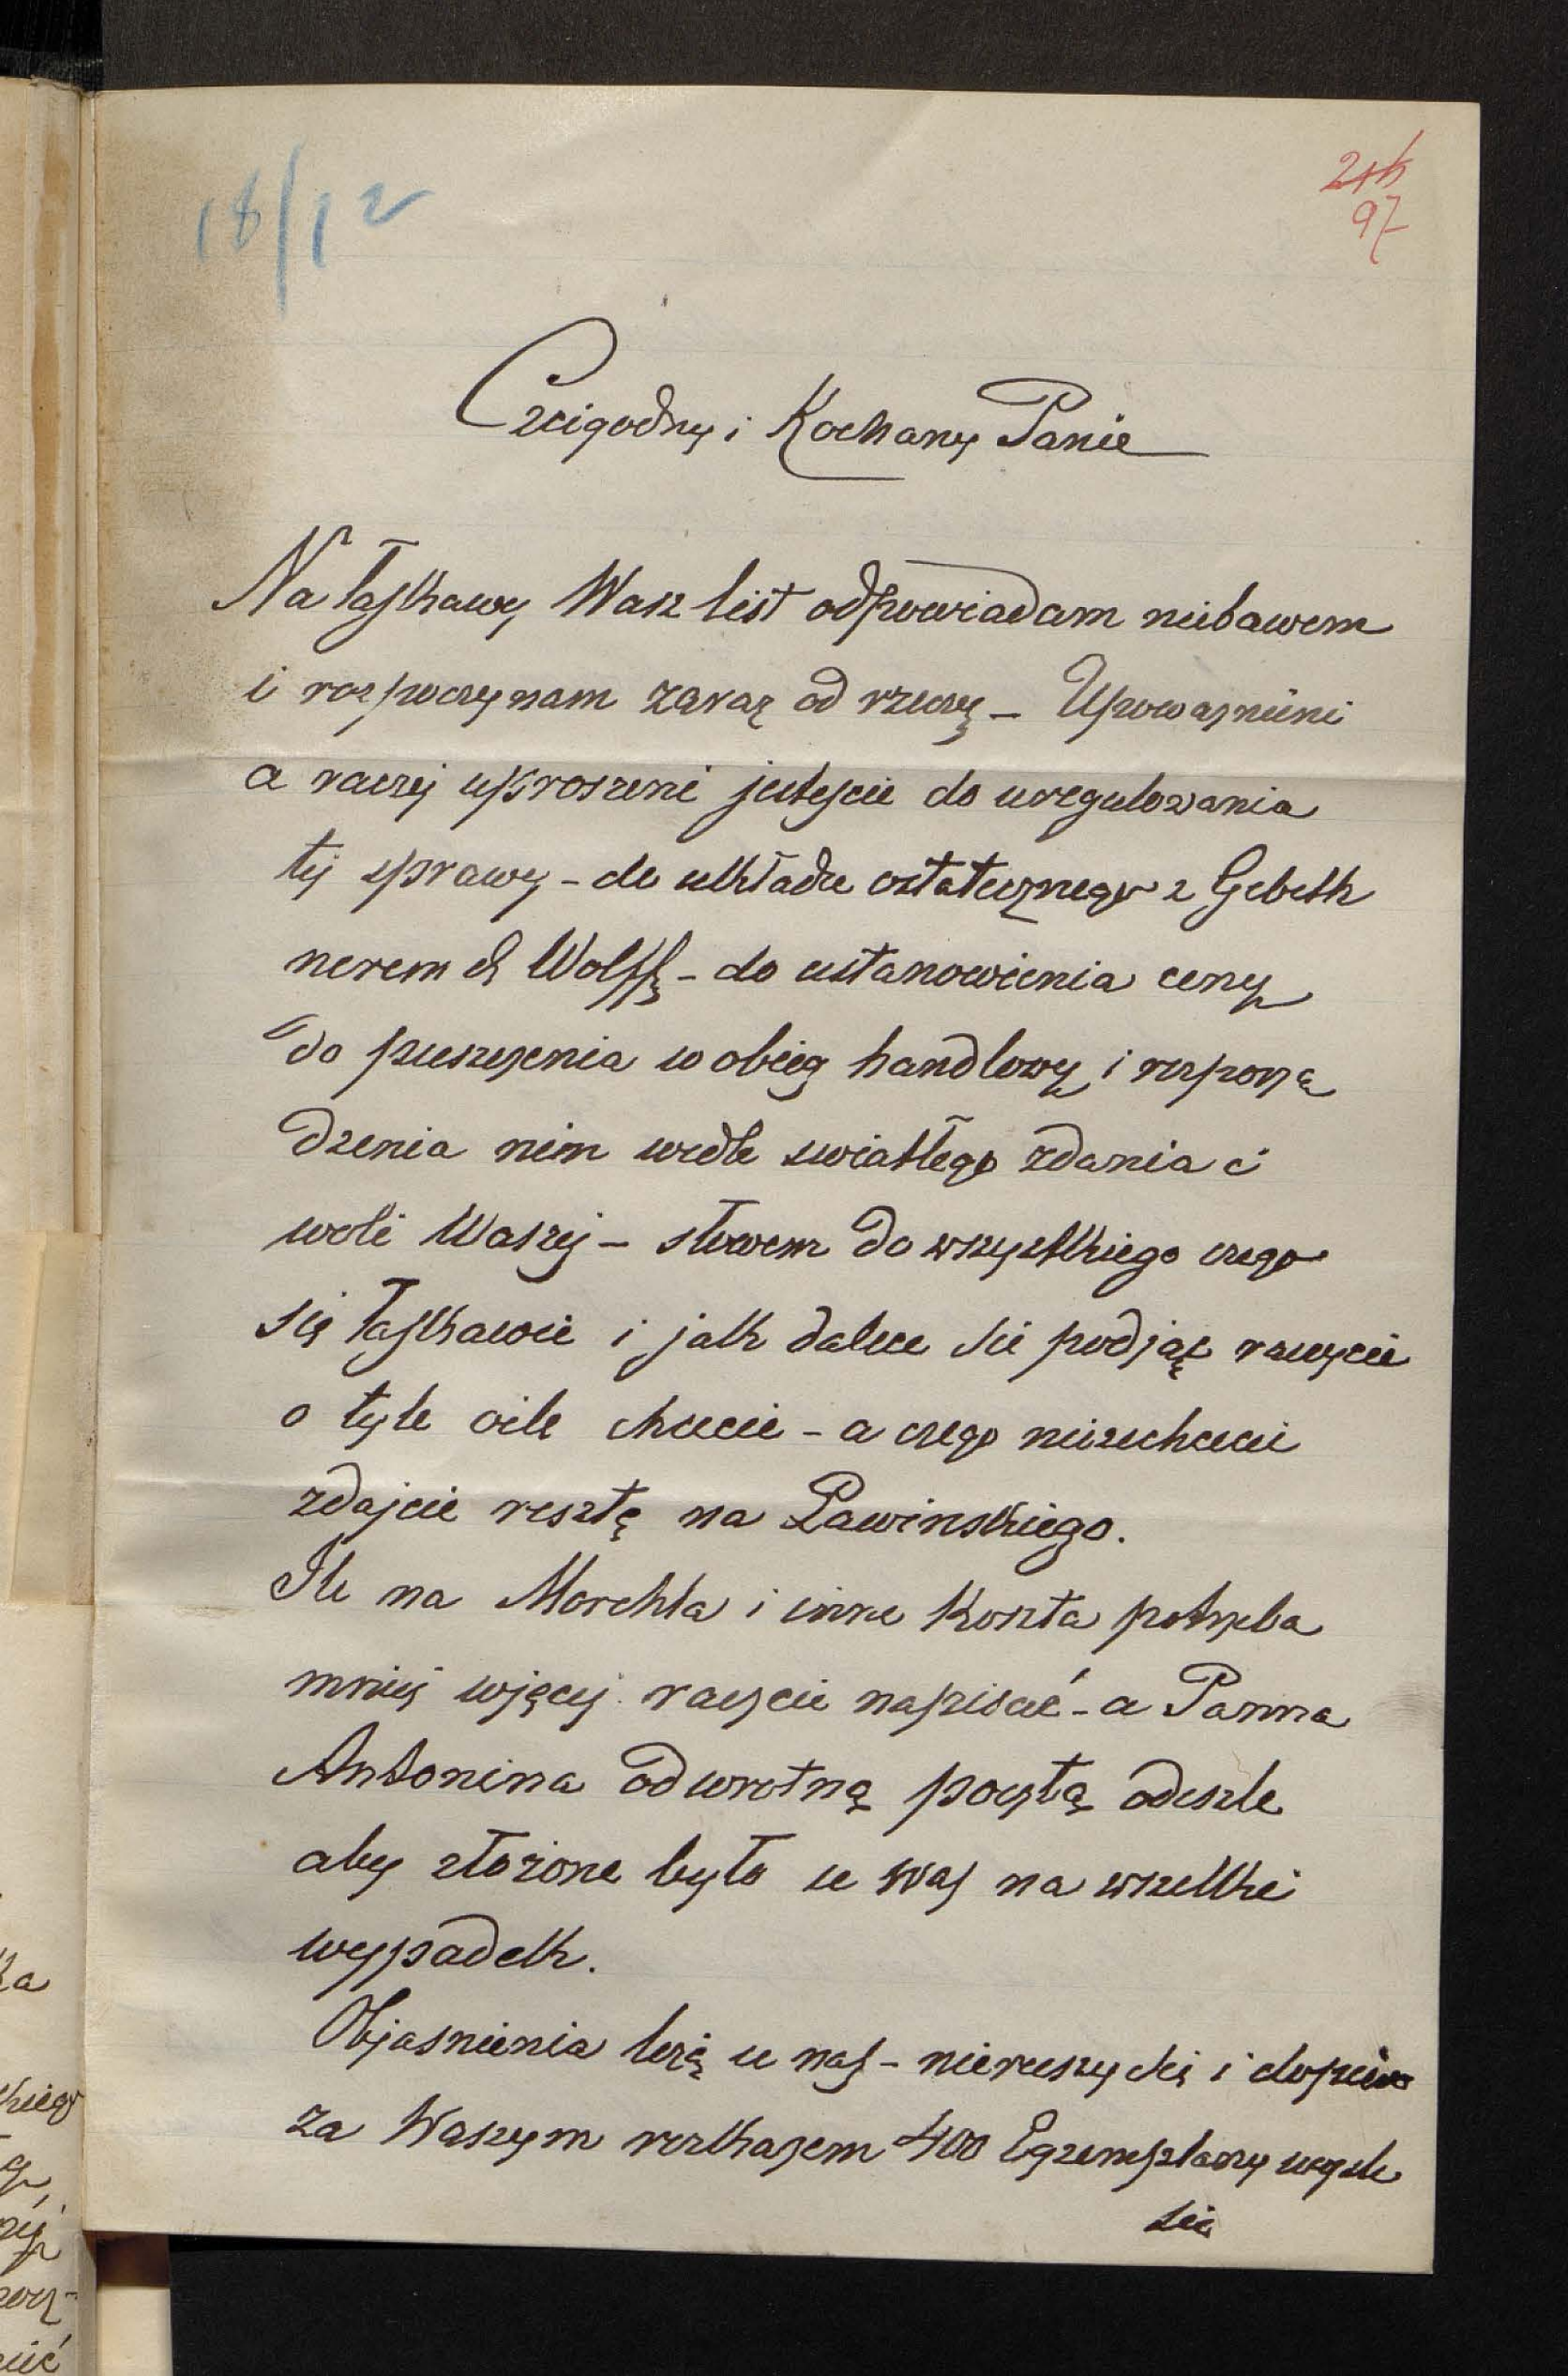 18/12
97
Czcigodny i Kochany Panie
Na łaskawy Wasz list odpowiadam niebawem
i rozpoczynam zaraz od rzeczy – Upoważnieni
a raczej uproszeni jesteście do uregulowania
tej sprawy – do układu ostatecznego z Gebeth
nerem & Wolffą – do ustanowienia ceny
do puszczenia w obieg handlowy i rozporzą
dzenia nim wedle swiatłego zdania i
woli Waszej – słowem do wszystkiego czego
się łaskawie i jak dalece sie podjąć raczycie
o tyle oile chcecie – a czego niezechcecie
zdajcie resztę na Pawinskiego.
Ile na Merckla i inne Koszta potrzeba
mniej więcej raczcie napisać – a Panna
Antonina odwrotną pocztą odeszle
aby złożone było u was na wszelki
wypadek.
Objasnienia leżą u nas – nieruszy się i dopiero
za Waszym rozkazem 400 Egzemplarzy wysle
się